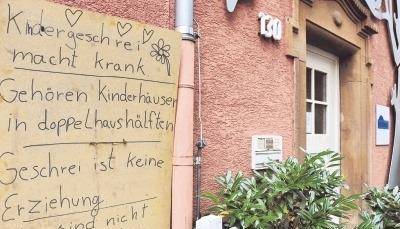 Kindergeschrei
macht krank
Gehören Kinderhäuser
in doppelhaushälften
Geschrei ist keine
Erziehung
sind nicht
130